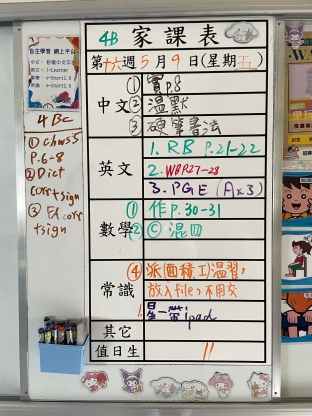 4B 家課表
第十六週5月9日(星期五)
中文
① 實P.8
② 溫默
③ 硬筆書法
英文
1. RB P.21-22
2. WB P27-28
3. PGE (Ax3)
數學
① 作P.30-31
② © 混四
常識
④ 派(圓積工)溫習,
放入file,不用交
1. 星一帶ipad
其它
值日生
11
自主學習 網上平台
4BC
① Chwss
P.6-8
② Dict
corr+sign
③ Ex.corr
+sign